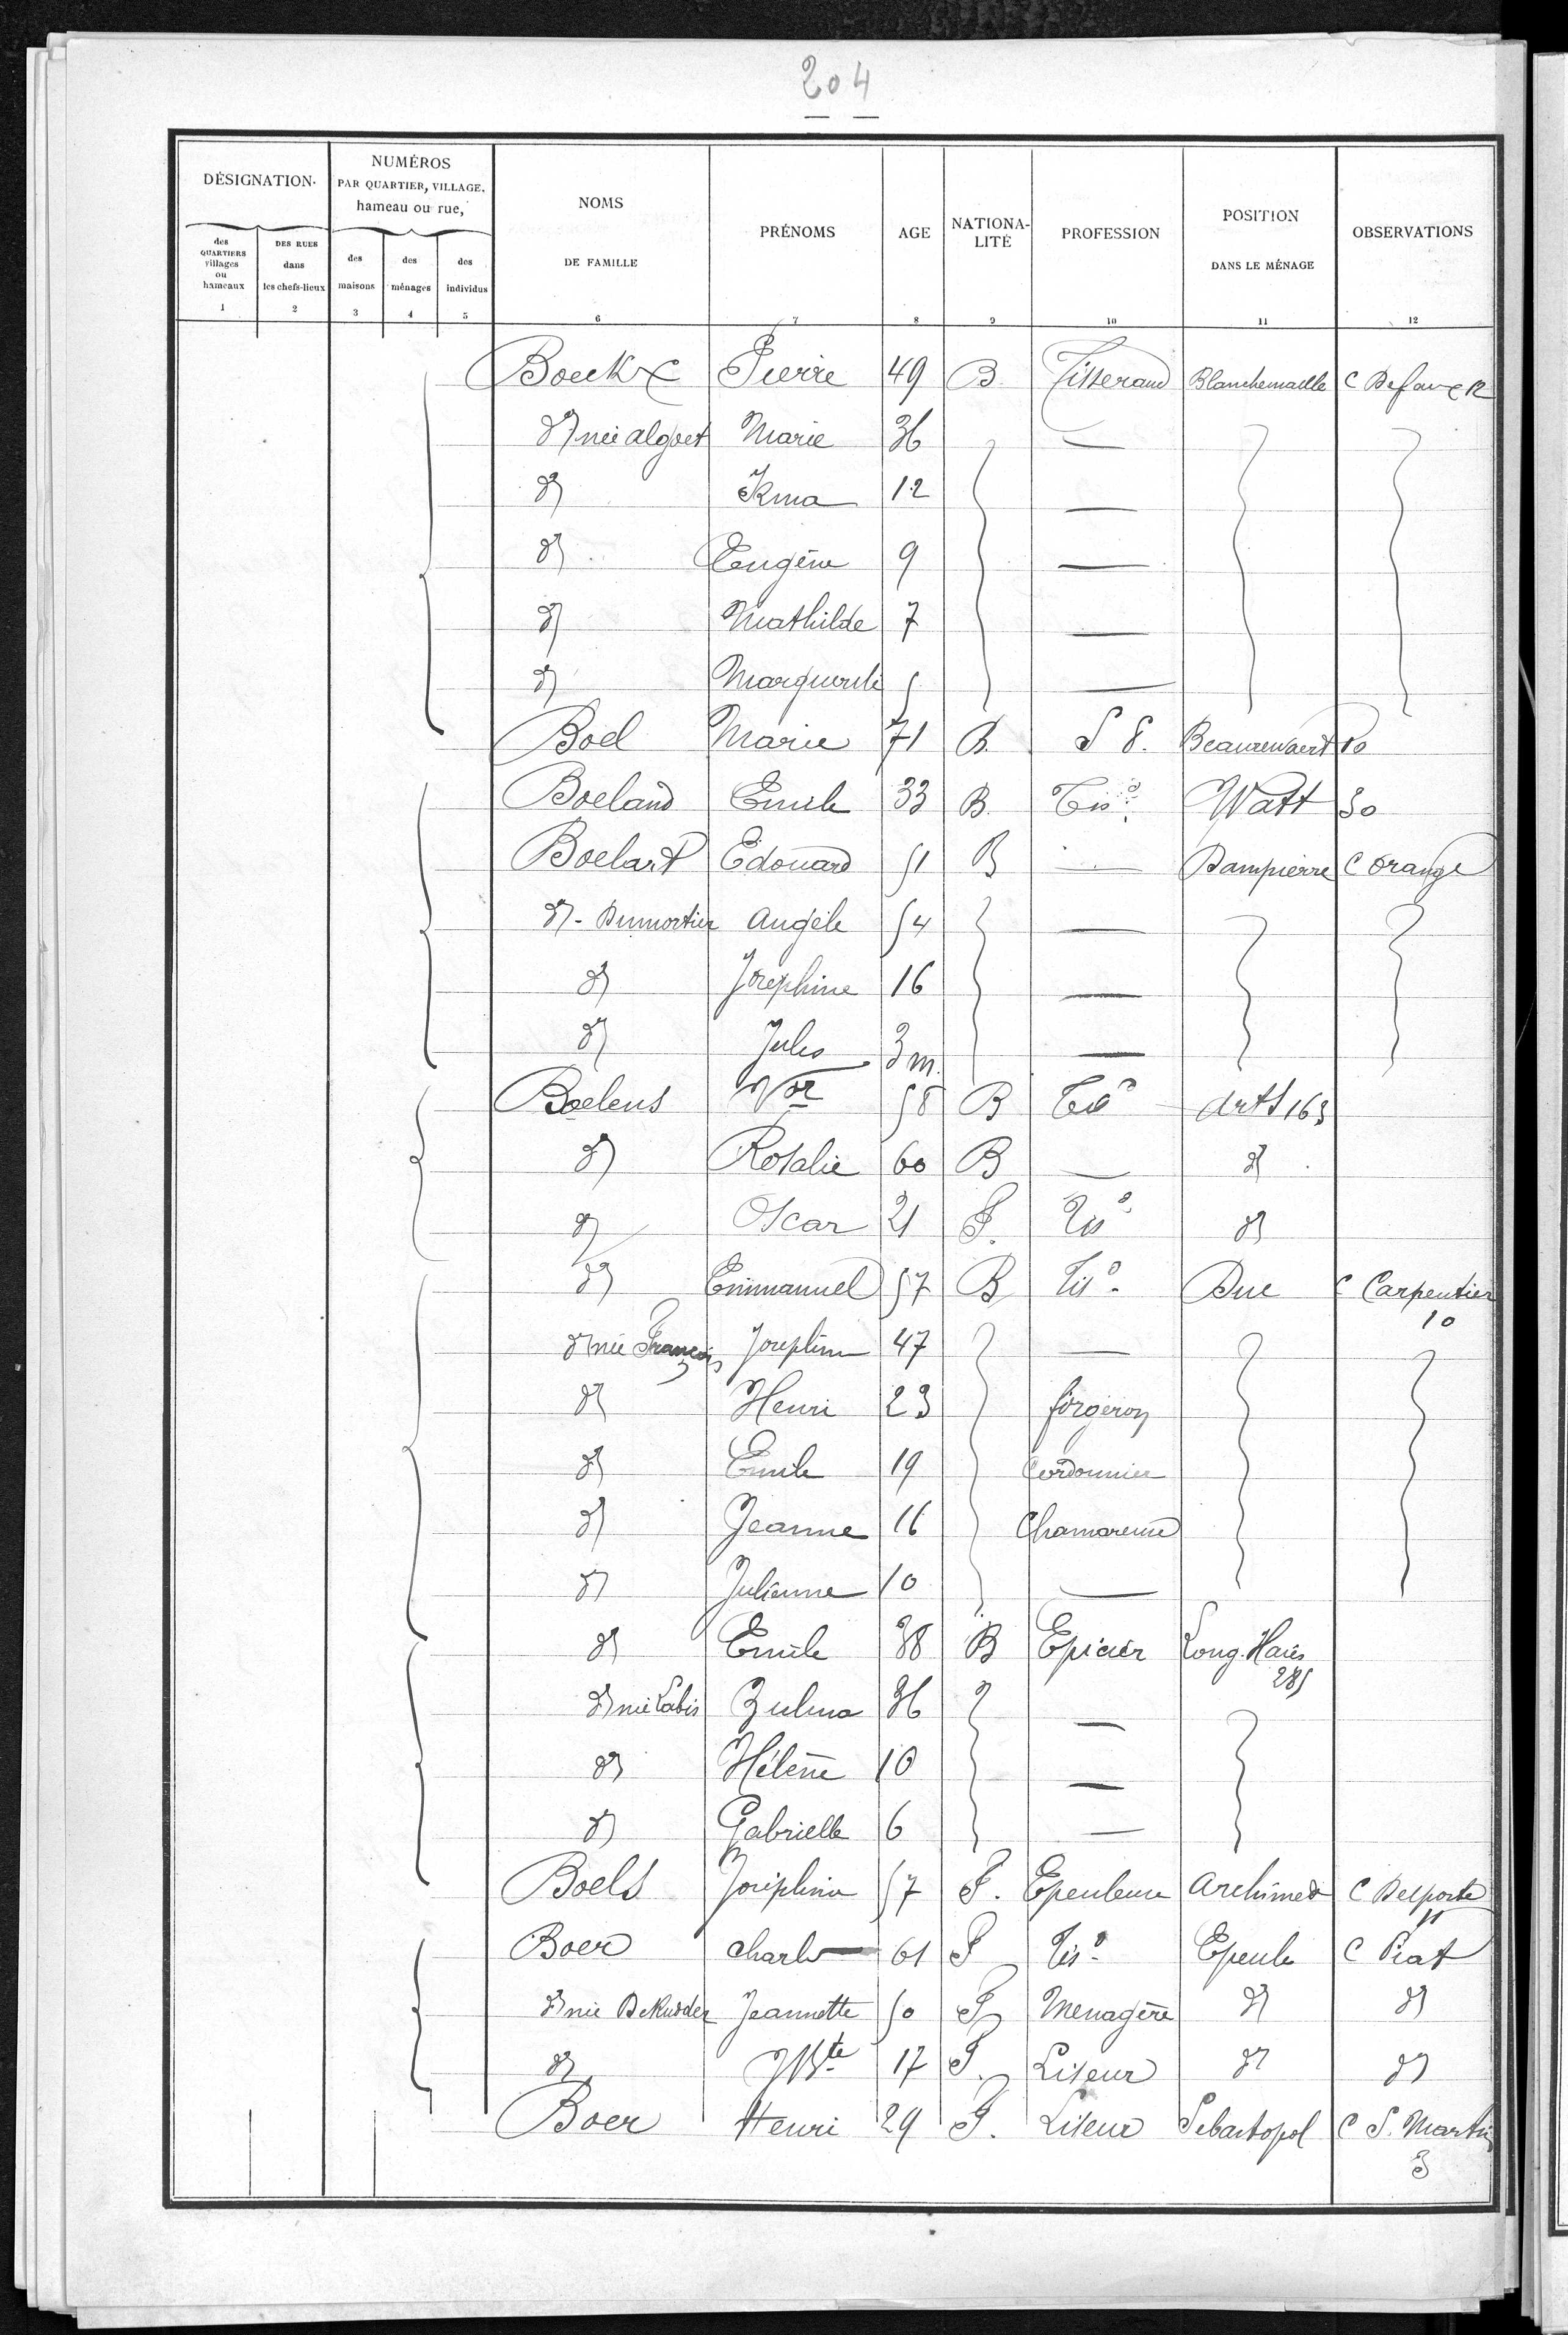 204
DÉSIGNATION. NUMÉROS PAR QUARTIER, VILLAGE, hameau ou rue, NOMS DE FAMILLE PRÉNOMS AGE NATIONALITÉ PROFESSION POSITION DANS LE MÉNAGE OBSERVATIONS
des QUARTIERS villages ou hameaux des RUES dans les chefs-lieux des maisons des ménages des individus
1 2 3 4 5 6 7 8 9 10 11 12
Boeckx Pierre 49 B. Tisserand Blanchemaille C Defaux 12
d° née algoet Marie 36 —
d° Irma 12 —
d° Eugène 9 —
d° Mathilde 7 —
d° Marguerite 5 —
Boel Marie 71 B. S P. Beaurewaert 10
Boeland Emile 33 B. Tisd Watt 30
Boelart Edouard 51 B — Dampierre C Orange
d° - Dumortier Angèle 54 —
d° Joséphine 16 —
d° Jules 3 m. —
Boelens Vor 58 B Tisd Arts 163
d° Rosalie 60 B — d°
d° Oscar 21 F. Tisd d°
d° Emmanuel 57 B Tisd Duc C Carpentier
10
d° née François Joséphine 47 —
d° Henri 23 forgeron
d° Emile 19 Cordonnier
d° Jeanne 16
d° Julienne 10 —
d° Emile 38 B Epicier Long. Haies
285
d° née Labis Zulma 36 —
d° Hélène 10 —
d° Gabrielle 6 —
Boels Joséphine 57 F. Epeuleuse Archimède C Delporte
11
Boer Charles 61 F Tisd Epeule C Piat
d° née DeRudder Jeannette 50 F Menagère d° d°
d° JBte 17 F. Liseur d° d°
Boer Henri 29 F. Liseur Sebastopol C S. Martin
3